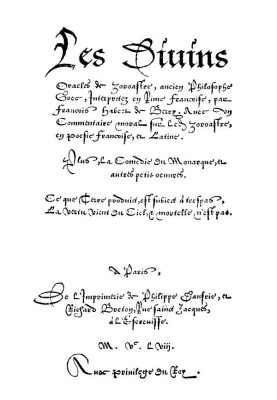 Les Diuins
Oracles de Zoroastre, ancien Philosophe
Grec, Interpretez en Rime Francoise, par
François Habert de Berry, Auec vn
Commentaire moral sur ledit Zoroastre,
en poesie Francoise, et Latine.
Plus La Comedie du Monarque, et
autres petis oeuures.
Ce que Terre produid, est subiect à trespas,
La vertu vient du Ciel, & mortelle n'est pas.
A Paris,
De L'Imprimerie de Philippe Danfrie, et
Richard Breton, Rue saint Jacques,
à L'Escreuisse.
M. Vc. L viii.
Auec priuilege du Roy.